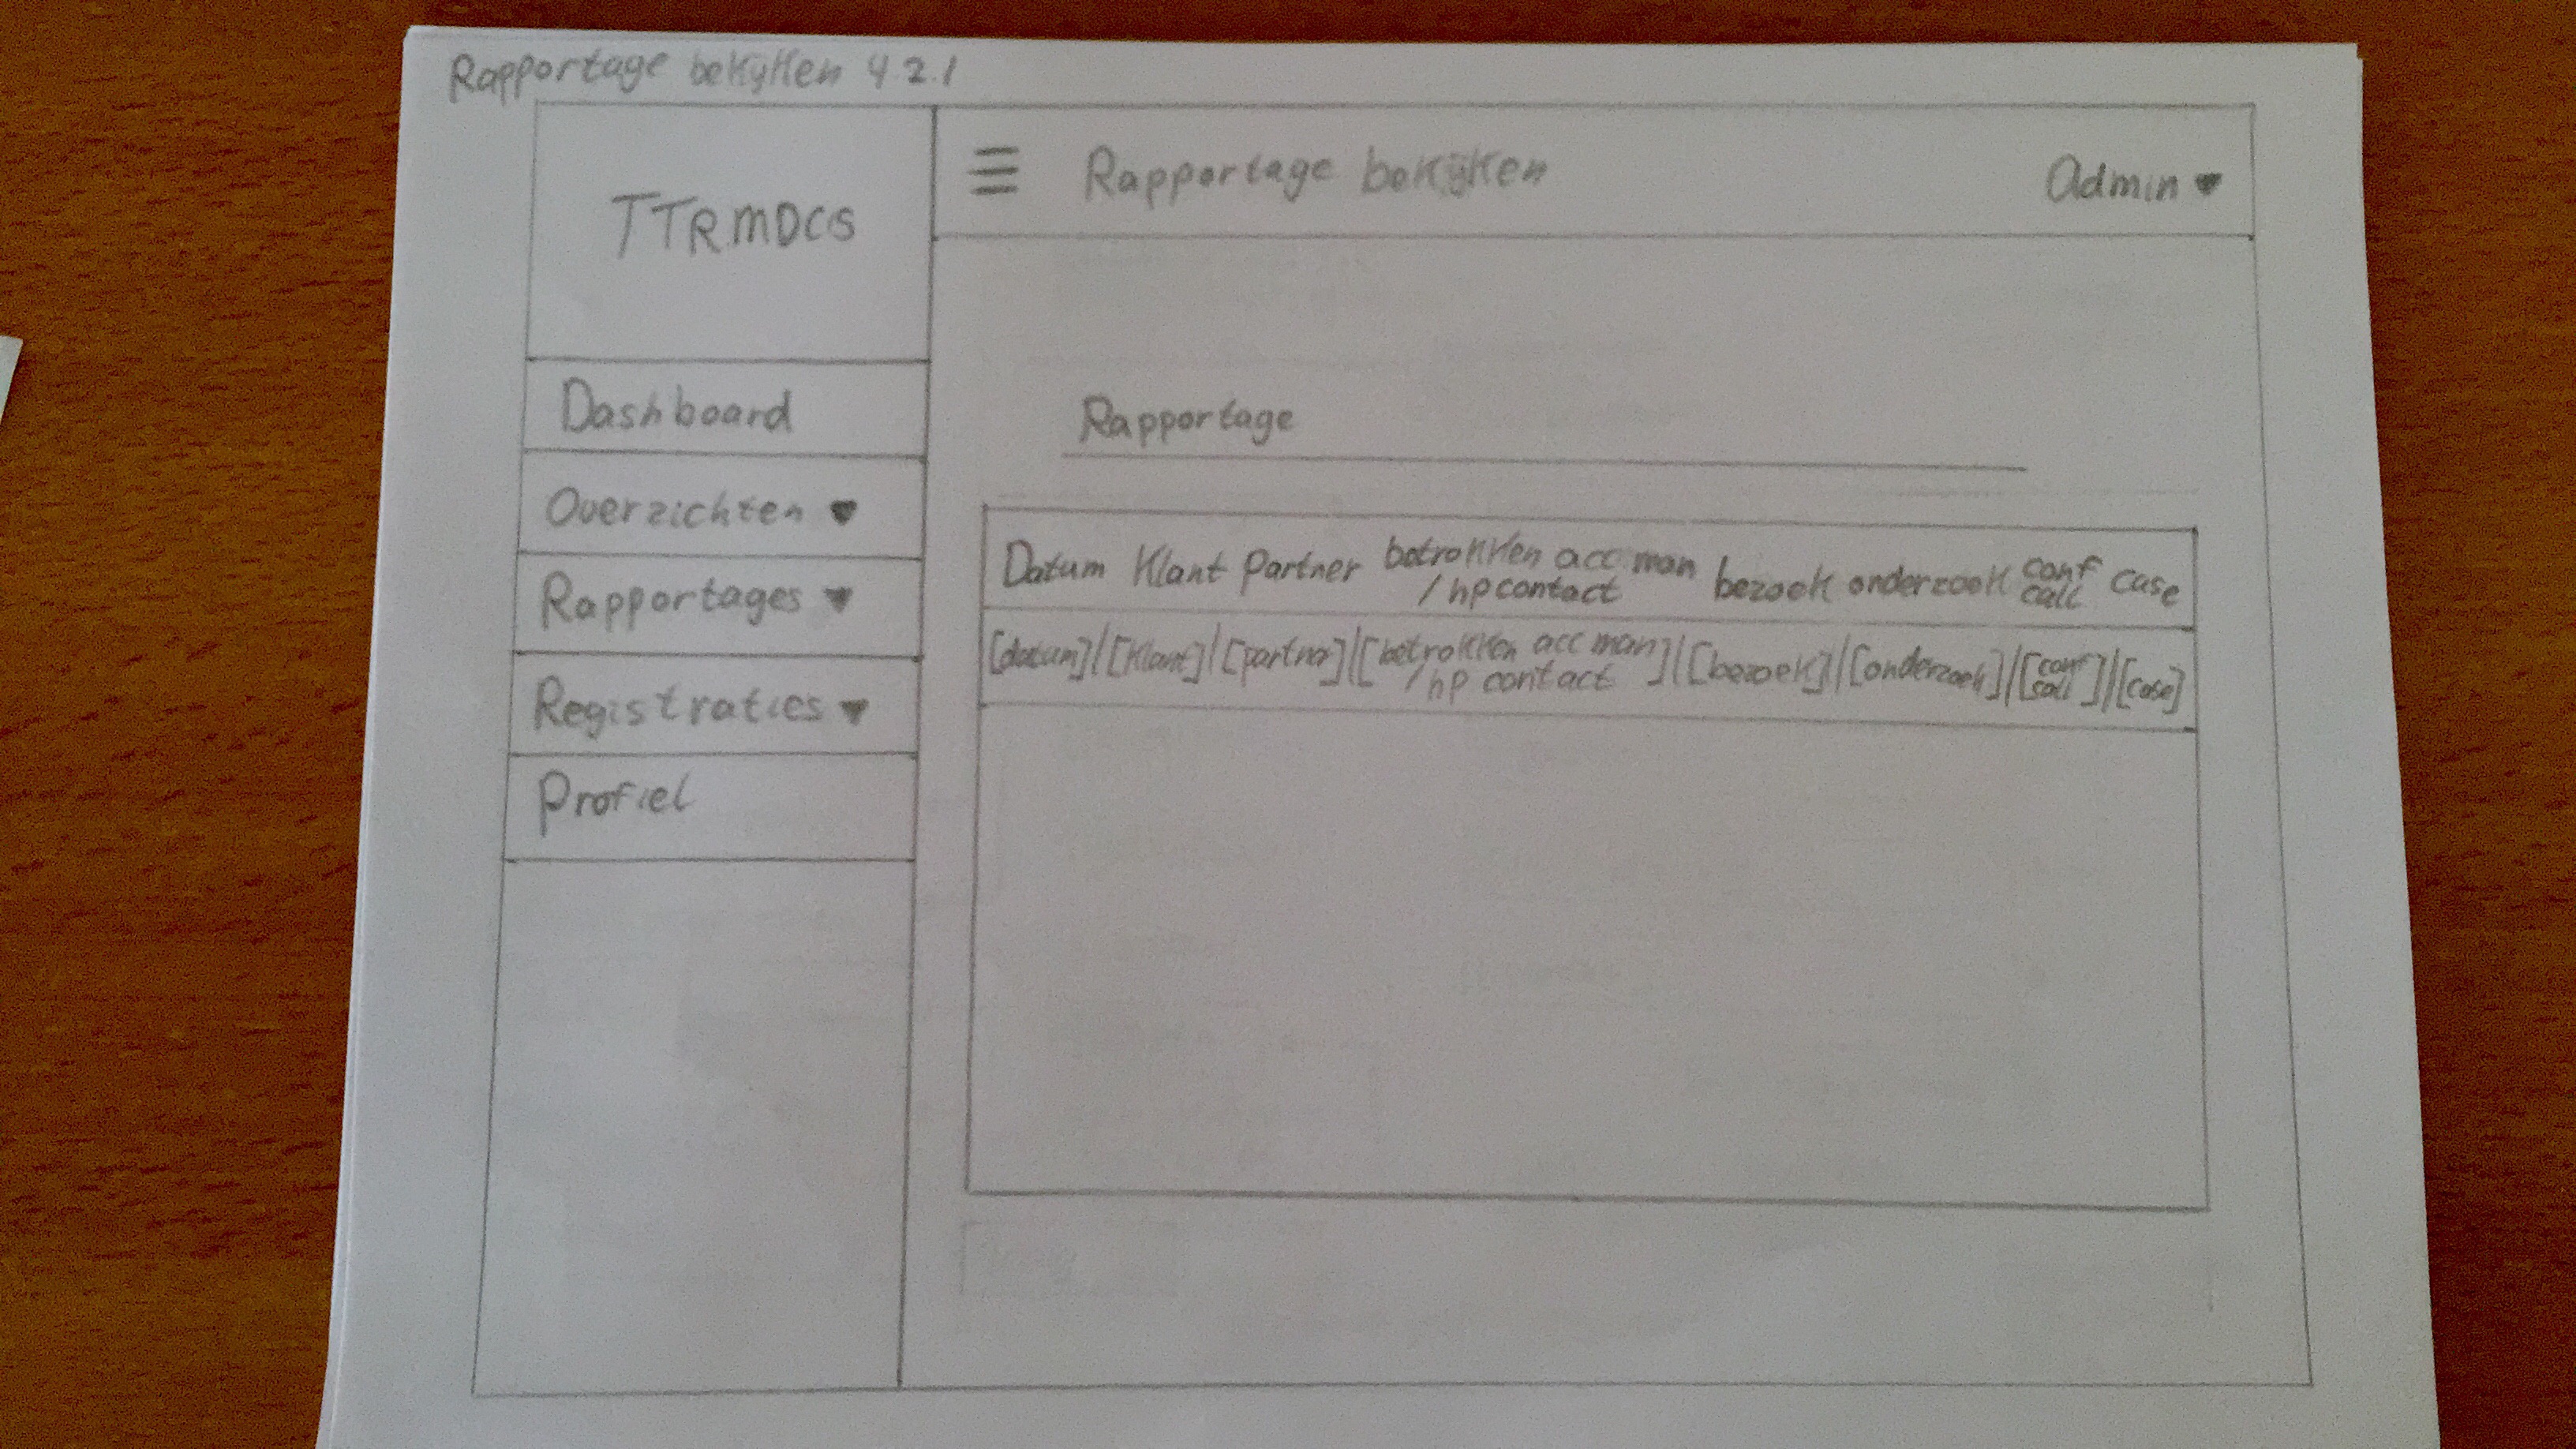 Rapportage bekijken 4.2.1
TTRMDCS
☰ Rapportage bekijken
Admin
Dashboard
Overzichten
Rapportages
Registraties
Profiel
Rapportage
Datum Klant Partner betrokken acc man / hp contact bezoek onderzoek conf call case
[datum] | [klant] | [partner] | [betrokken acc man / hp contact] | [bezoek] | [onderzoek] | [conf call] | [case]